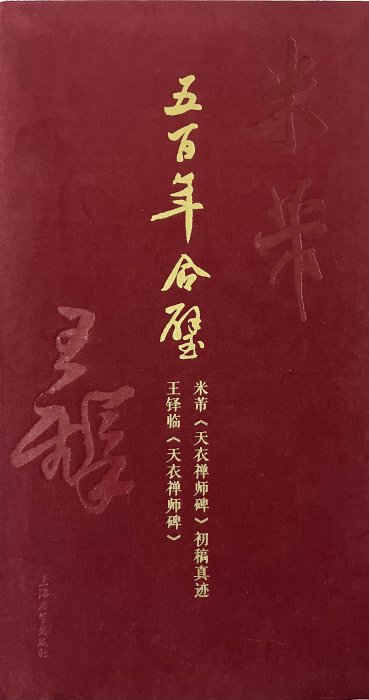 米芾
五百年合璧
米芾《天衣禅师碑》初稿真迹
王铎临《天衣禅师碑》
王铎
上海大学出版社